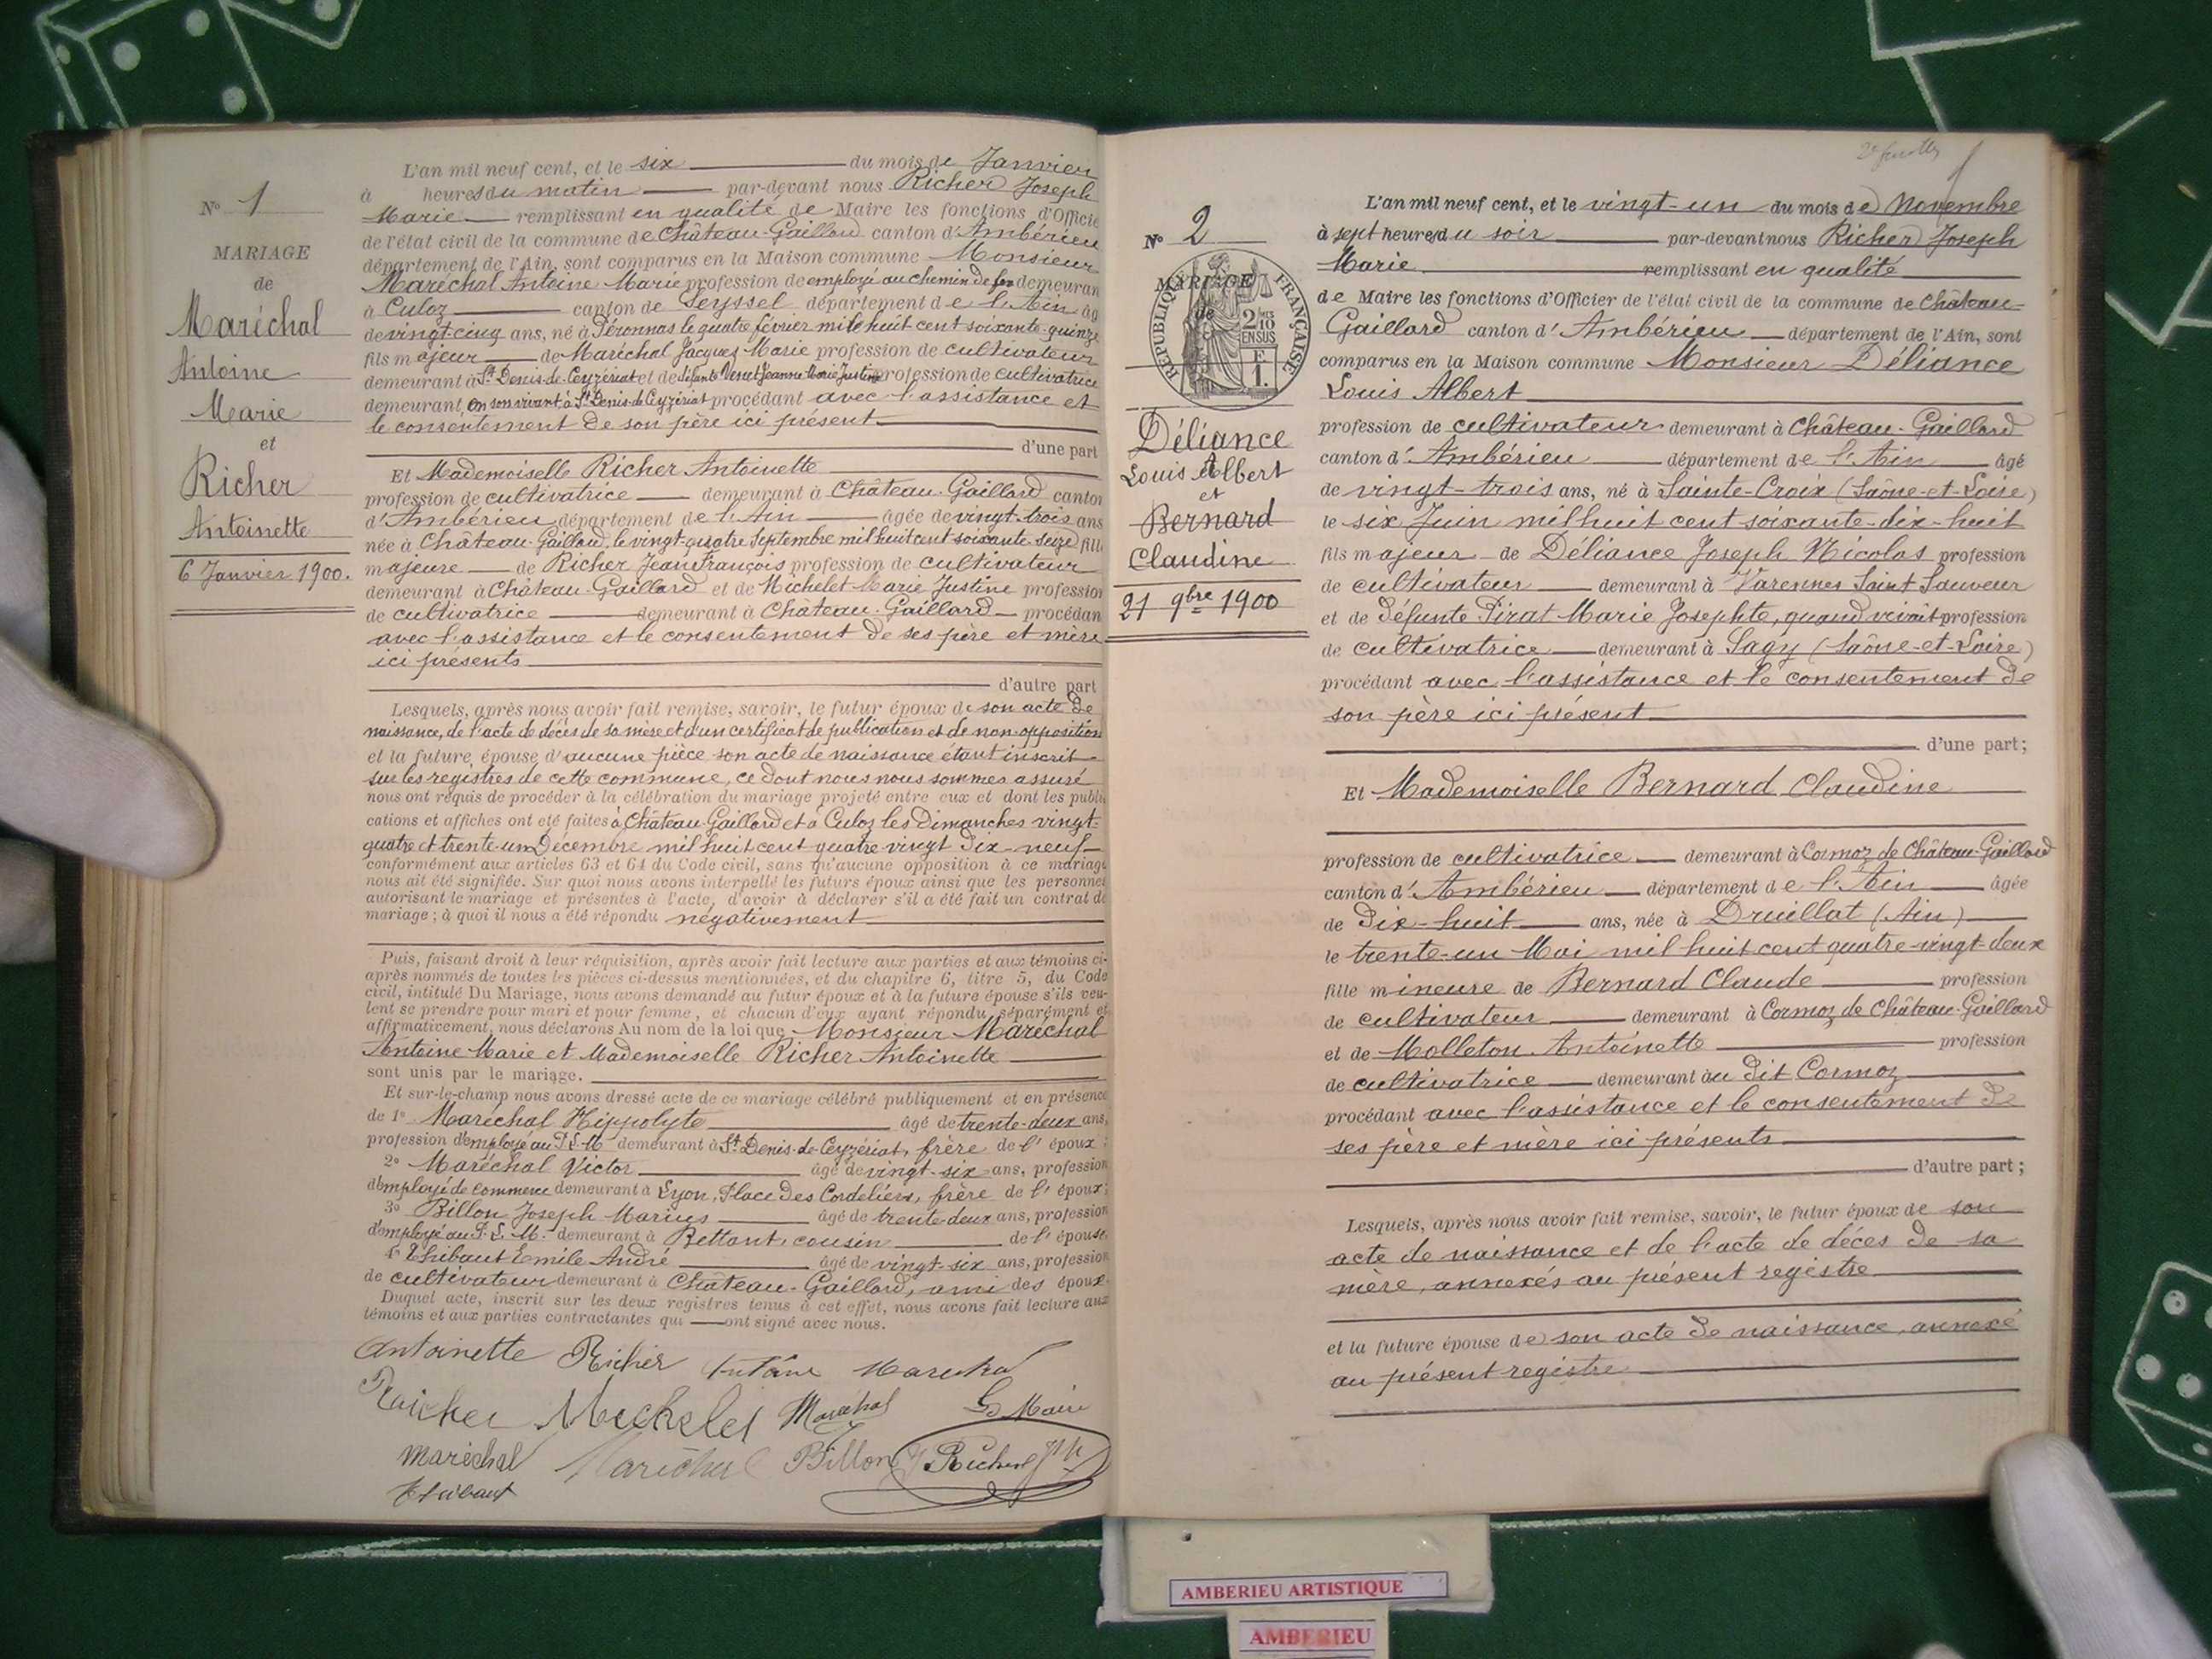 N° 1
MARIAGE
de
Maréchal
Antoine
Marie
et
Richer
Antoinette
6 Janvier 1900.
L'an mil neuf cent, et le six du mois de Janvier
à heures du matin par-devant nous Richer Joseph
Marie remplissant en qualité de Maire les fonctions d'Officie
de l'état civil de la commune de Château-Gaillard canton d'Ambérieu
département de l'Ain, sont comparus en la Maison commune Monsieur
Maréchal Antoine Marie profession de employé au chemin de fer demeuran
à Culoz canton de Seyssel département de l'Ain âg
de vingt-cinq ans, né à Péronnas le quatre février mil huit cent soixante-quinze
fils majeur de Maréchal Jacques Marie profession de cultivateur
demeurant à St Denis-de-Ceyzériat et de défunte Jeanne Marie Justine profession de cultivatrice
demeurant, en son vivant, à St Denis-de-Ceyzériat procédant avec l'assistance et
le consentement de son père ici présent
d'une part
Et Mademoiselle Richer Antoinette
profession de cultivatrice demeurant à Château-Gaillard canton
d'Ambérieu département de l'Ain âgée de vingt-trois ans
née à Château-Gaillard, le vingt-quatre Septembre mil huit cent soixante-seize fill
majeure de Richer Jean François profession de cultivateur
demeurant à Château-Gaillard et de Michelet Marie Justine profession
de cultivatrice demeurant à Château-Gaillard procédan
avec l'assistance et le consentement de ses père et mère
ici présents
d'autre part
Lesquels, après nous avoir fait remise, savoir, le futur époux de son acte de
naissance, de l'acte de décès de sa mère et d'un certificat de publication et de non-opposition
et la future épouse d'aucune pièce son acte de naissance étant inscrit
sur les registres de cette commune, ce dont nous nous sommes assuré
nous ont requis de procéder à la célébration du mariage projeté entre eux et dont les publi
cations et affiches ont été faites à Château-Gaillard et à Culoz les Dimanches vingt-
quatre et trente-un Décembre mil huit cent quatre vingt dix-neuf
conformément aux articles 63 et 64 du Code civil, sans qu'aucune opposition à ce mariage
nous ait été signifiée. Sur quoi nous avons interpellé les futurs époux ainsi que les personnes
autorisant le mariage et présentes à l'acte, d'avoir à déclarer s'il a été fait un contrat de
mariage ; à quoi il nous a été répondu négativement
Puis, faisant droit à leur réquisition, après avoir fait lecture aux parties et aux témoins ci-
après nommés de toutes les pièces ci-dessus mentionnées, et du chapitre 6, titre 5, du Code
civil, intitulé Du Mariage, nous avons demandé au futur époux et à la future épouse s'ils veu-
lent se prendre pour mari et pour femme, et chacun d'eux ayant répondu séparément et
affirmativement, nous déclarons Au nom de la loi que Monsieur Maréchal
Antoine Marie et Mademoiselle Richer Antoinette
sont unis par le mariage.
Et sur-le-champ nous avons dressé acte de ce mariage célébré publiquement et en présence
de 1° Maréchal Hippolyte âgé de trente-deux ans,
profession d'employé au P.L.M demeurant à St Denis-de-Ceyzériat, frère de l'époux ;
2° Maréchal Victor âgé de vingt-six ans, profession
d'employé de commerce demeurant à Lyon, Place des Cordeliers, frère de l'époux ;
3° Billon Joseph Marius âgé de trente-deux ans, profession
d'employé au P.L.M. demeurant à Bettant, cousin de l'épouse
4° Thibaut Emile André âgé de vingt-six ans, profession
de cultivateur demeurant à Château-Gaillard, ami des époux
Duquel acte, inscrit sur les deux registres tenus à cet effet, nous avons fait lecture aux
témoins et aux parties contractantes qui ont signé avec nous.
Antoinette Richer Antoine Marechal
Raicher Michelet Maréchal Le Maire
Maréchal Maréchal Billon Richer Jph
Thibaut
2e feuille
N° 2
MARIAGE
de
RÉPUBLIQUE FRANÇAISE
2/10
EN SUS
F
1.
Déliance
Louis Albert
et
Bernard
Claudine
21 9bre 1900
L'an mil neuf cent, et le vingt-un du mois de Novembre
à sept heures du soir par-devant nous Richer Joseph
Marie remplissant en qualité
de Maire les fonctions d'Officier de l'état civil de la commune de Château-
Gaillard canton d'Ambérieu département de l'Ain, sont
comparus en la Maison commune Monsieur Déliance
Louis Albert
profession de cultivateur demeurant à Château-Gaillard
canton d'Ambérieu département de l'Ain âgé
de vingt-trois ans, né à Sainte-Croix (Saône-et-Loire)
le six Juin mil huit cent soixante-dix-huit
fils majeur de Déliance Joseph Nicolas profession
de cultivateur demeurant à Varennes Saint Sauveur
et de défunte Pirat Marie Josephte, quand vivait profession
de cultivatrice demeurant à Sagy (Saône-et-Loire)
procédant avec l'assistance et le consentement de
son père ici présent
d'une part ;
Et Mademoiselle Bernard Claudine
profession de cultivatrice demeurant à Cormoz de Château-Gaillard
canton d'Ambérieu département de l'Ain âgée
de dix-huit ans, née à Druillat (Ain)
le trente-un Mai mil huit cent quatre-vingt-deux
fille mineure de Bernard Claude profession
de cultivateur demeurant à Cormoz de Château-Gaillard
et de Molleton Antoinette profession
de cultivatrice demeurant au dit Cormoz
procédant avec l'assistance et le consentement de
ses père et mère ici présents
d'autre part ;
Lesquels, après nous avoir fait remise, savoir, le futur époux de son
acte de naissance et de l'acte de décès de sa
mère, annexés au présent registre
et la future épouse de son acte de naissance, annexé
au présent registre
AMBERIEU ARTISTIQUE
AMBERIEU